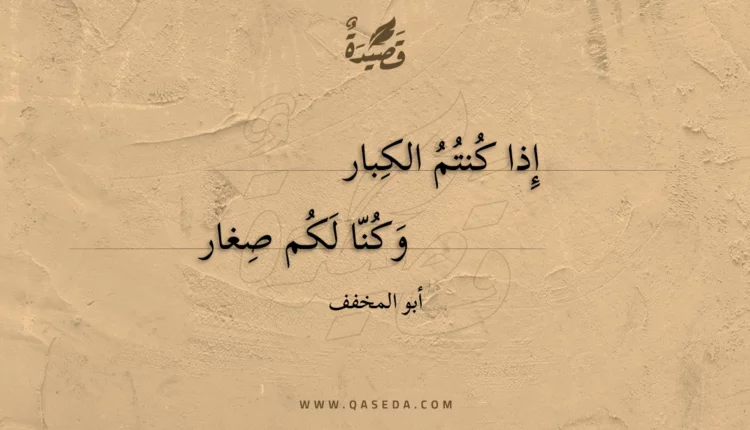 قَصِيْدَةٌ
إِذا كُنتُمُ الكِبار
وَكُنّا لَكُم صِغار
أبو المخفف
WWW.QASEDA.COM